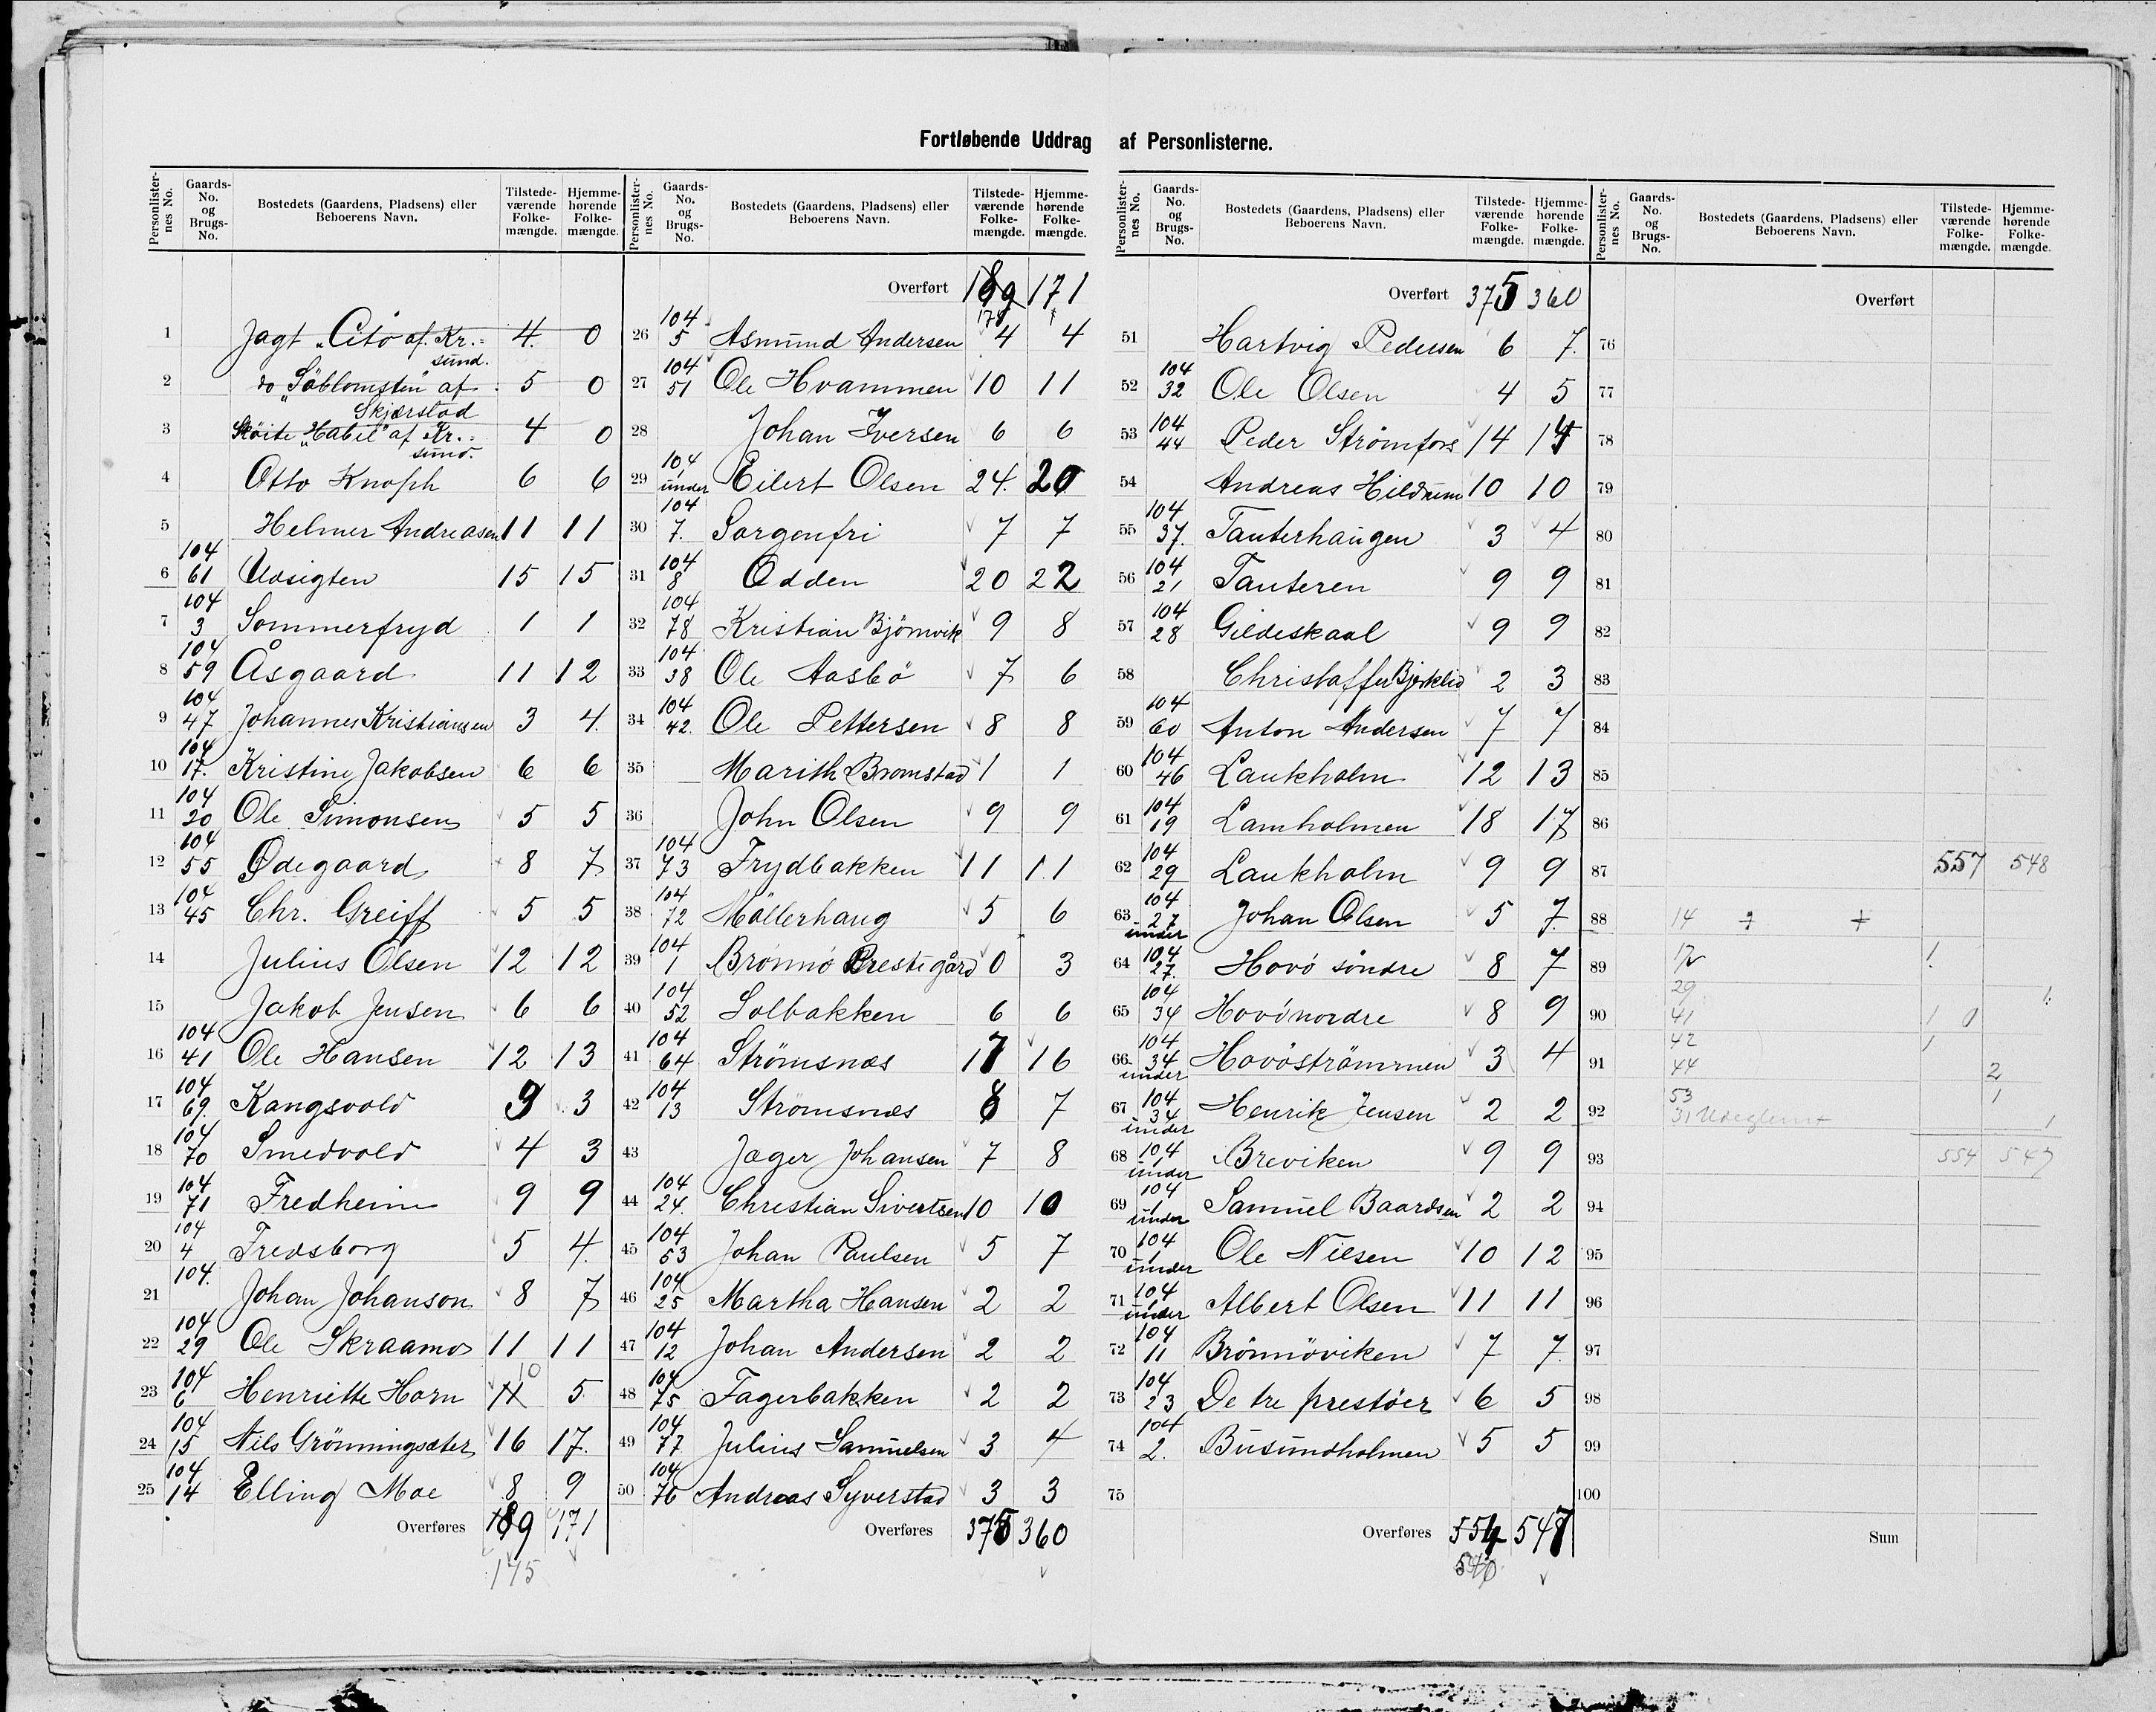 Fortløbende Uddrag af Personlisterne.
Personlister-nes No. Gaards-No. og Brugs-No. Bostedets (Gaardens, Pladsens) eller Beboerens Navn. Tilstede-værende Folke-mængde. Hjemme-hørende Folke-mængde.
1 Jagt "Cito" af Kr.=sund. 4 0
2 do "Söblomsten" af Skjærstad 5 0
3 Skøite "Habil" af Kr.=sund. 4 0
4 Otto Knoph 6 6
5 Helmer Andreasen 11 11
6 104 61 Udsigten 15 15
7 104 3 Sommerfryd 1 1
8 104 59 Åsgaard 11 12
9 104 47 Johannes Kristiansen 3 4
10 104 17. Kristine Jakobsen 6 6
11 104 20 Ole Simonsen 5 5
12 104 55 Ødegaard 8 7
13 104 45 Chr. Greiff 5 5
14 Julius Olsen 12 12
15 Jakob Jensen 6 6
16 104 41 Ole Hansen 12 13
17 104 69. Kangsvold 3 3
18 104 70 Smedvold 4 3
19 104 71 Fredheim 9 9
20 104 4 Fredsborg 5 4.
21 104. Johan Johanson 8 7
22 104 29 Ole Skraamo 11 11
23 104 6 Henriette Horn 10 5
24 104 15 Nils Grönningsæter 16 17.
25 104 14 Elling Moe 8 9
Overføres 189 171
175
Personlister-nes No. Gaards-No. og Brugs-No. Bostedets (Gaardens, Pladsens) eller Beboerens Navn. Tilstede-værende Folke-mængde. Hjemme-hørende Folke-mængde.
Overført 189 171
26 104 5 Asmund Andersen 4 4
27 104 51 Ole Hvammen 10 11
28 Johan Iversen 6 6
29 104 1 under Eilert Olsen 24. 20
30 104 7. Sorgenfri 7 7
31 104 8 Odden 20 22
32 104 78 Kristian Bjömvik 9 8
33 104 38 Ole Aasbö 7 6
34 104 42. Ole Pettersen 8 8
35 Marith Bromstad 1 1
36 John Olsen 9 9
37 104 73 Frydbakken 11 11
38 104 72 Möllerhaug 5 6
39 104 1 Brönnö Prestegård 0 3
40 104 52 Solbakken 6 6
41 104 64 Strömsnæs 17 16
42 104 13 Strömsnæs 8 7
43 Jæger Johansen 7 8
44 104 24. Christian Sivertsen 10 10
45 104 53 Johan Paulsen 5 7
46 104 25 Martha Hansen 2 2
47 104 12 Johan Andersen 2 2
48 104 75 Fagerbakken 2 2
49 104 77 Julius Samuelsen 3 4
50 104 76 Andreas Syverstad 3 3
Overføres 375 360
Personlister-nes No. Gaards-No. og Brugs-No. Bostedets (Gaardens, Pladsens) eller Beboerens Navn. Tilstede-værende Folke-mængde. Hjemme-hørende Folke-mængde.
Overført 375 360
51 Hartvig Pedersen 6 7.
52 104 32 Ole Olsen 4 5
53 104 44 Peder Strømfors 14 14
54 Andreas Hildrum 10 10
55 104 37. Tauterhaugen 3 4
56 104 21 Tauteren 9 9
57 104 28 Gildeskaal 9 9
58 Christoffer Bjerklid 2 3
59 104 60 Anton Andersen 7 7
60 104 46 Laukholm 12 13
61 104 19 Lamholmen 18 17
62 104 29 Laukholm 9 9
63 104 27 under Johan Olsen 5 7.
64 104 27. Hovö söndre 8 7
65 104 34 Hovö nordre 8 9
66 104 34 under Hovöströmmen 3 4
67 104 34 under Henrik Jensen 2 2
68 104 1 under Breviken 9 9
69 104 1 under Samuel Baardsen 2 2
70 104 1 under Ole Nilsen 10 12
71 104 1 under Albert Olsen 11 11
72 104 11 Brönnöviken 7 7.
73 104 23 De tre prestöer 6 5
74 104 2. Busundholmen 5 5
75
Overføres 554 547
540
Personlister-nes No. Gaards-No. og Brugs-No. Bostedets (Gaardens, Pladsens) eller Beboerens Navn. Tilstede-værende Folke-mængde. Hjemme-hørende Folke-mængde.
Overført
76
77
78
79
80
81
82
83
84
85
86
87 557 548
88 14
89 1.
29 1.
90 41 1
91 42 1
44 2
53 1
92 31 1
93 554 547
94
95
96
97
98
99
100
Sum